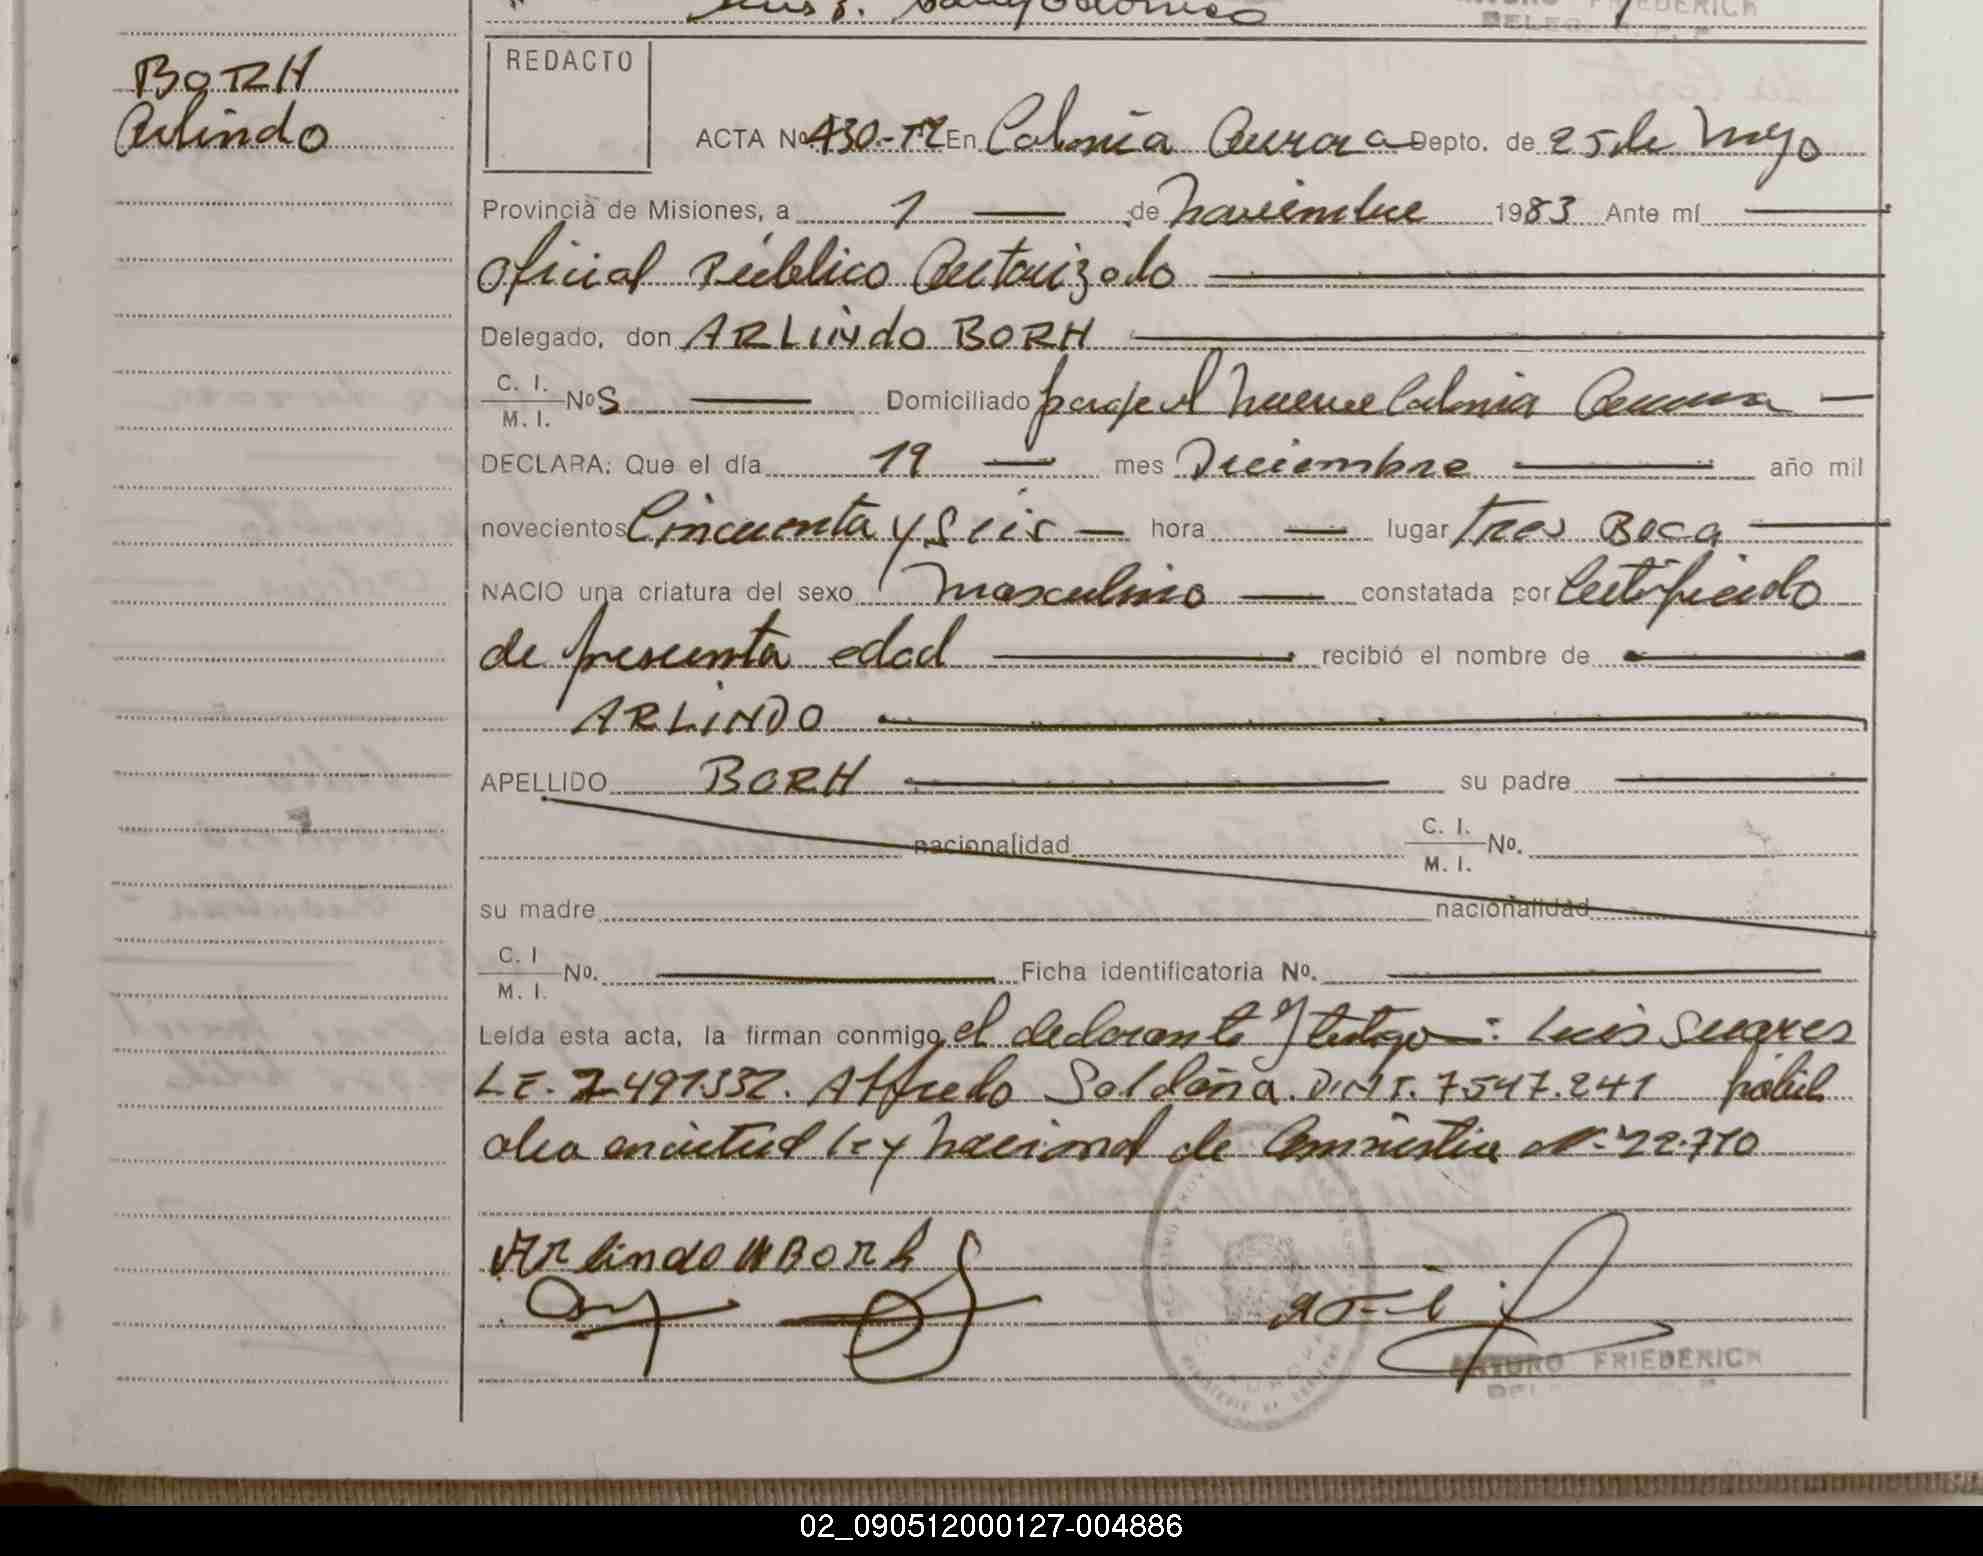 BORH
Arlindo
REDACTO
ACTA Nº 430-T2 En Colonia Aurora Depto. de 25 de Mayo
Provincia de Misiones, a 1 de noviembre 1983 Ante mí
oficial Público Autorizado
Delegado, don ARLINDO BORH
C. I.
M. I. Nº S Domiciliado paraje el nueve Colonia Aurora
DECLARA: Que el día 19 mes Diciembre año mil
novecientos Cincuenta y Seis hora lugar Tres Boca
NACIO una criatura del sexo masculino constatada por Certificado
de presunta edad recibió el nombre de
ARLINDO
APELLIDO BORH su padre
nacionalidad C. I.
M. I. No.
su madre nacionalidad
C. I
M. I. No. Ficha identificatoria Nº.
Leída esta acta, la firman conmigo, el declarante y testigo: Luis Suares
LE. 7.491.332. Alfredo Soldaña. D.N.I. 7.547.241 hábil
en virtud Ley Nacional de Amnistia Nº 22.710
Arlindo BORH
ARTURO FRIEDERICH
02_090512000127-004886